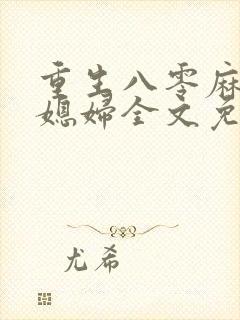 重生八零麻
媳妇全文免
尤希